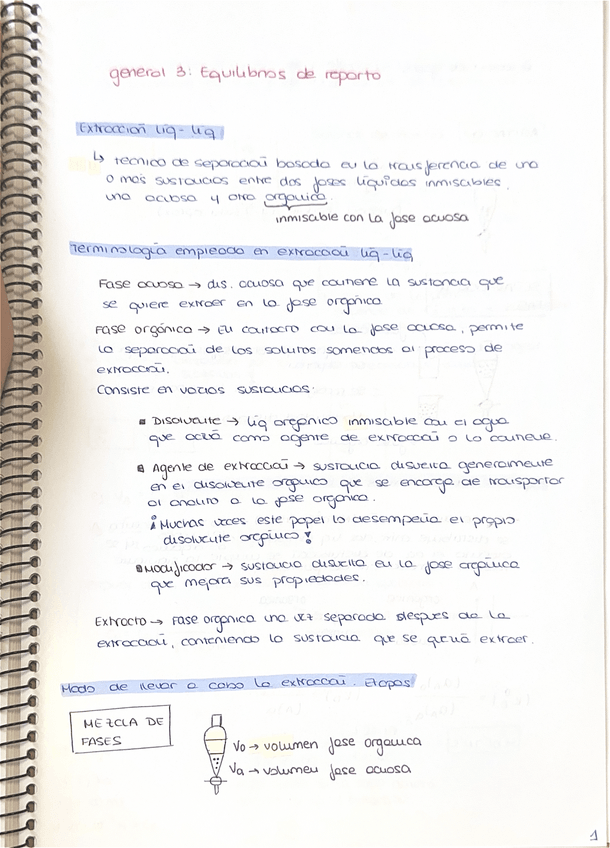 general 3: Equilibrios de reparto
Extracción liq-liq
↳ técnica de separación basada en la transferencia de una
o más sustancias entre dos fases líquidas inmiscibles.
una acuosa y otra orgánica.
inmiscible con la fase acuosa
Terminología empleada en extracción liq-liq
Fase acuosa → dis. acuosa que contiene la sustancia que
se quiere extraer en la fase orgánica
Fase orgánica → En contacto con la fase acuosa, permite
la separación de los solutos sometidos al proceso de
extracción.
Consiste en varias sustancias:
▪ Disolvente → liq orgánico inmiscible con el agua
que actúa como agente de extracción o lo contiene.
▪ Agente de extracción → sustancia disuelta generalmente
en el disolvente orgánico que se encarga de transportar
al analito a la fase orgánica.
¡Muchas veces este papel lo desempeña el propio
disolvente orgánico!
▪ Modificador → sustancia disuelta en la fase orgánica
que mejora sus propiedades.
Extracto → Fase orgánica una vez separada después de la
extracción, conteniendo la sustancia que se quería extraer.
Modo de llevar a cabo la extracción. Etapas
MEZCLA DE
FASES
Vo → volumen fase orgánica
Va → volumen fase acuosa
1